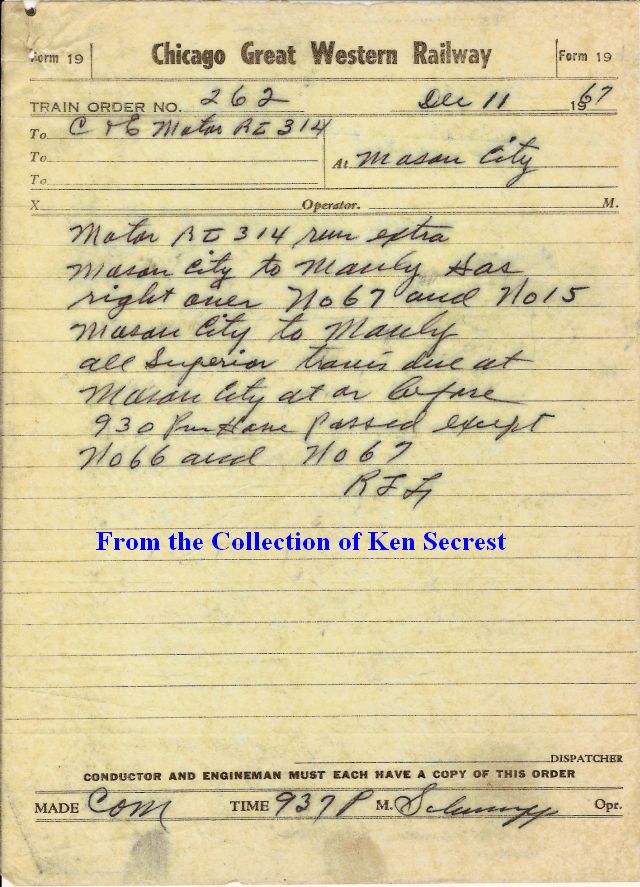 Form 19 Chicago Great Western Railway Form 19
TRAIN ORDER NO. 262 Dec 11 1967
To C & E Motor RI 314
To
To
At Mason City
X Operator. M.
Motor RI 314 run extra
Mason City to Manly Has
right over No 67 and No 15
Mason City to Manly
all Superior trains due at
Mason City at or before
930 Pm Have passed except
No 66 and No 67
From the Collection of Ken Secrest
DISPATCHER
CONDUCTOR AND ENGINEMAN MUST EACH HAVE A COPY OF THIS ORDER
MADE Com TIME 937 P M. Opr.